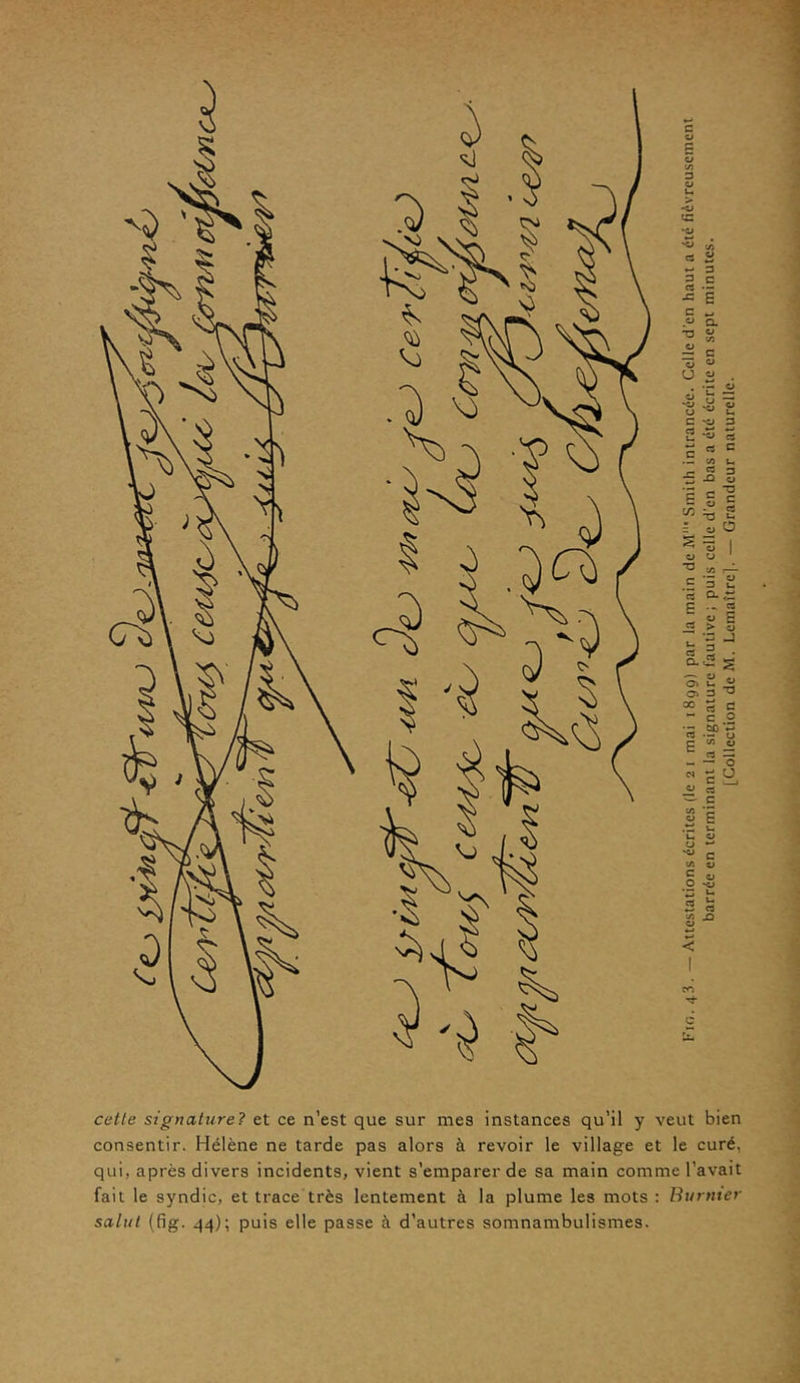 ce vingt et un de mai je soussigné
certifie à tous ceuse à qui la connoissance
appartient que je suis Burnien
ce vingt et un de mai je certifie
à tous ceuse à qui la connoissance
appartient que je suis Burnien
Curé De Chessenaz
FIG. 43. — Attestations écrites (le 21 mai 1899) par la main de Mlle Smith intrancée. Celle d'en haut a été fiévreusement
barrée en terminant la signature fautive; puis celle d'en bas a été écrite en sept minutes.
[Collection de M. Lemaître]. — Grandeur naturelle.
cette signature? et ce n'est que sur mes instances qu'il y veut bien
consentir. Hélène ne tarde pas alors à revoir le village et le curé,
qui, après divers incidents, vient s'emparer de sa main comme l'avait
fait le syndic, et trace très lentement à la plume les mots : Burnier
salut (fig. 44); puis elle passe à d'autres somnambulismes.